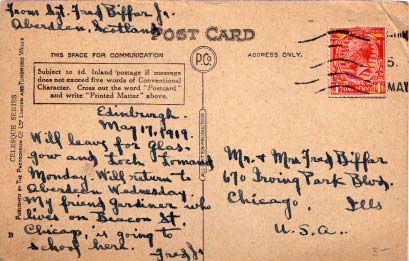 From Sgt. Fred Biffar Jr.
Aberdeen, Scotland
POST CARD
THIS SPACE FOR COMMUNICATION
ADDRESS ONLY.
Subject to ½d. Inland postage if message
does not exceed five words of Conventional
Character. Cross out the word "Postcard"
and write "Printed Matter" above.
Edinburgh.
May 17, 1919.
Will leave for Glas-
gow and Loch Lomand
Monday. Will return to
Aberdeen Wednesday.
My friend Gardiner who
lives on Beacon St.
Chicago, is going to
school here.
Fred Jr
Mr. & Mrs Fred Biffar
670 Irving Park Blvd.
Chicago, Ills
U.S.A.
CELESQUE SERIES
PUBLISHED BY THE PHOTOCHROM CO. LTD. LONDON AND TUNBRIDGE WELLS
B
MAY
3-